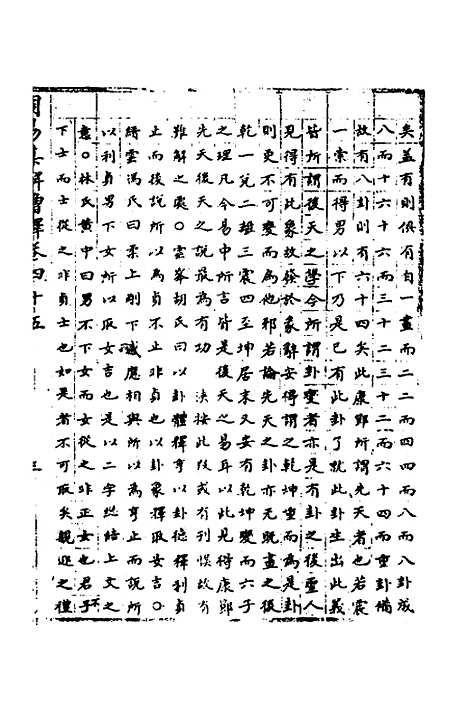 矣蓋有則俱有自一畫而二二而四四而八而八卦成
八而十六十六而三十二三十二而六十四而重卦備
故有八卦則有六十四矣此康節所謂先天者也若震
一索而得男以下乃是已有此卦了就此卦生出此義
皆所謂後天之學今所謂卦變者亦是有卦之後聖人
見得有此象故發於彖辭安得謂之乾坤重而為是卦
則更不可變而為他卦邪若論先天之卦亦无既畫之後
乾一兌二離三震四至坤居末又安有乾坤變而六子
之理凡今易中所言皆是後天之易耳以此見得康節
先天後天之說最為有功　決按此段或有刊悞故有
難解之處○雲峯胡氏曰以卦體釋亨以卦德釋利貞
止而後說所以為貞不止非貞也以卦象釋取女吉○
縉雲馮氏曰柔上剛下感應相與所以為亨止而說所
以利貞男下女所以取女吉也是以二字總結上文之
意○林氏黃中曰男不下女而女從之非正女也君子不
下士而士從之非貞士也如是者不可取矣親迎之禮
周易集解增釋卷四十五
三